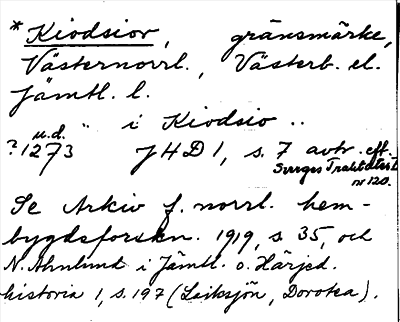 * Kiodsiov, gränsmärke,
Västernorrl., Västerb. el.
Jämtl. l.
" i Kiodsio ..
u.d.
? 1273 JHD 1, s. 7 avtr. eft.
Sverges Traktater I
nr 120.
Se Arkiv f. norrl. hem-
bygdsforskn. 1919, s 35, och
N. Ahnlund i Jämtl. o. Härjed.
historia 1, s. 197 (Laiksjön, Dorotea).